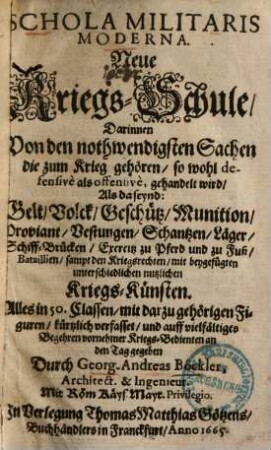 SCHOLA MILITARIS
MODERNA.
Neue
Kriegs-Schule/
Darinnen
Von den nothwendigsten Sachen
die zum Krieg gehören/ so wohl de-
fensivè als offensivè, gehandelt wird/
Als da seynd:
Gelt/ Volck/ Geschütz/ Munition/
Proviant/ Vestungen/ Schantzen/ Läger/
Schiff-Brücken/ Exercitz zu Pferd und zu Fuß/
Bataillien/ sampt den Kriegsrechten/ mit beygefügten
unterschiedlichen nutzlichen
Kriegs-Künsten.
Alles in 50. Classen, mit dar zu gehörigen Fi-
guren/ kürtzlich verfasset/ und auff vielfältiges
Begehren vornehmer Kriegs-Bedienten an
den Tag gegeben
Durch Georg. Andreas Böckler,
Architect. & Ingenieur.
Mit Röm. Käys. Mayt. Privilegio.
In Verlegung Thomas Matthias Götzens/
Buchhändlers in Franckfurt/ Anno 1665.